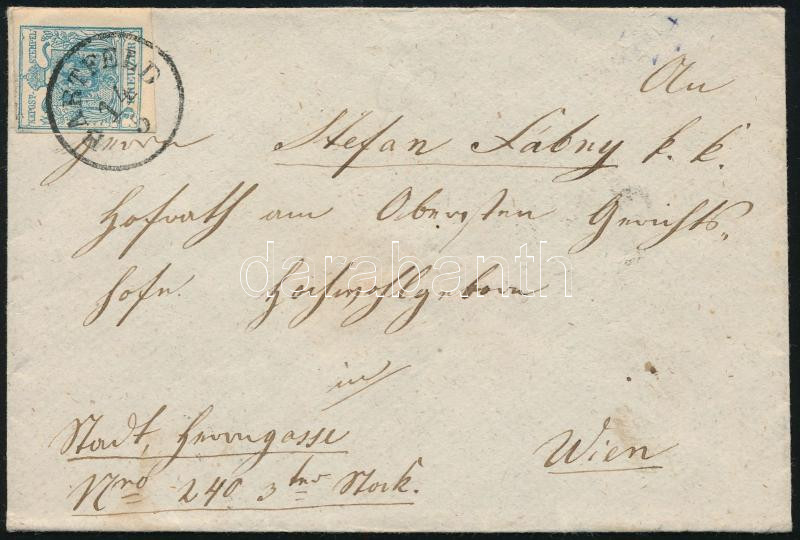 K.K.POST-STEMPEL
KREUZER
BARTFELD
14
An
Herrn Stefan Fábry k. k.
Hofrath am Obersten Gerichts-
hofe Hochwohlgeborn
in
Wien
Stadt, Herrngasse
Nro 240 3ter Stock.
darabanth